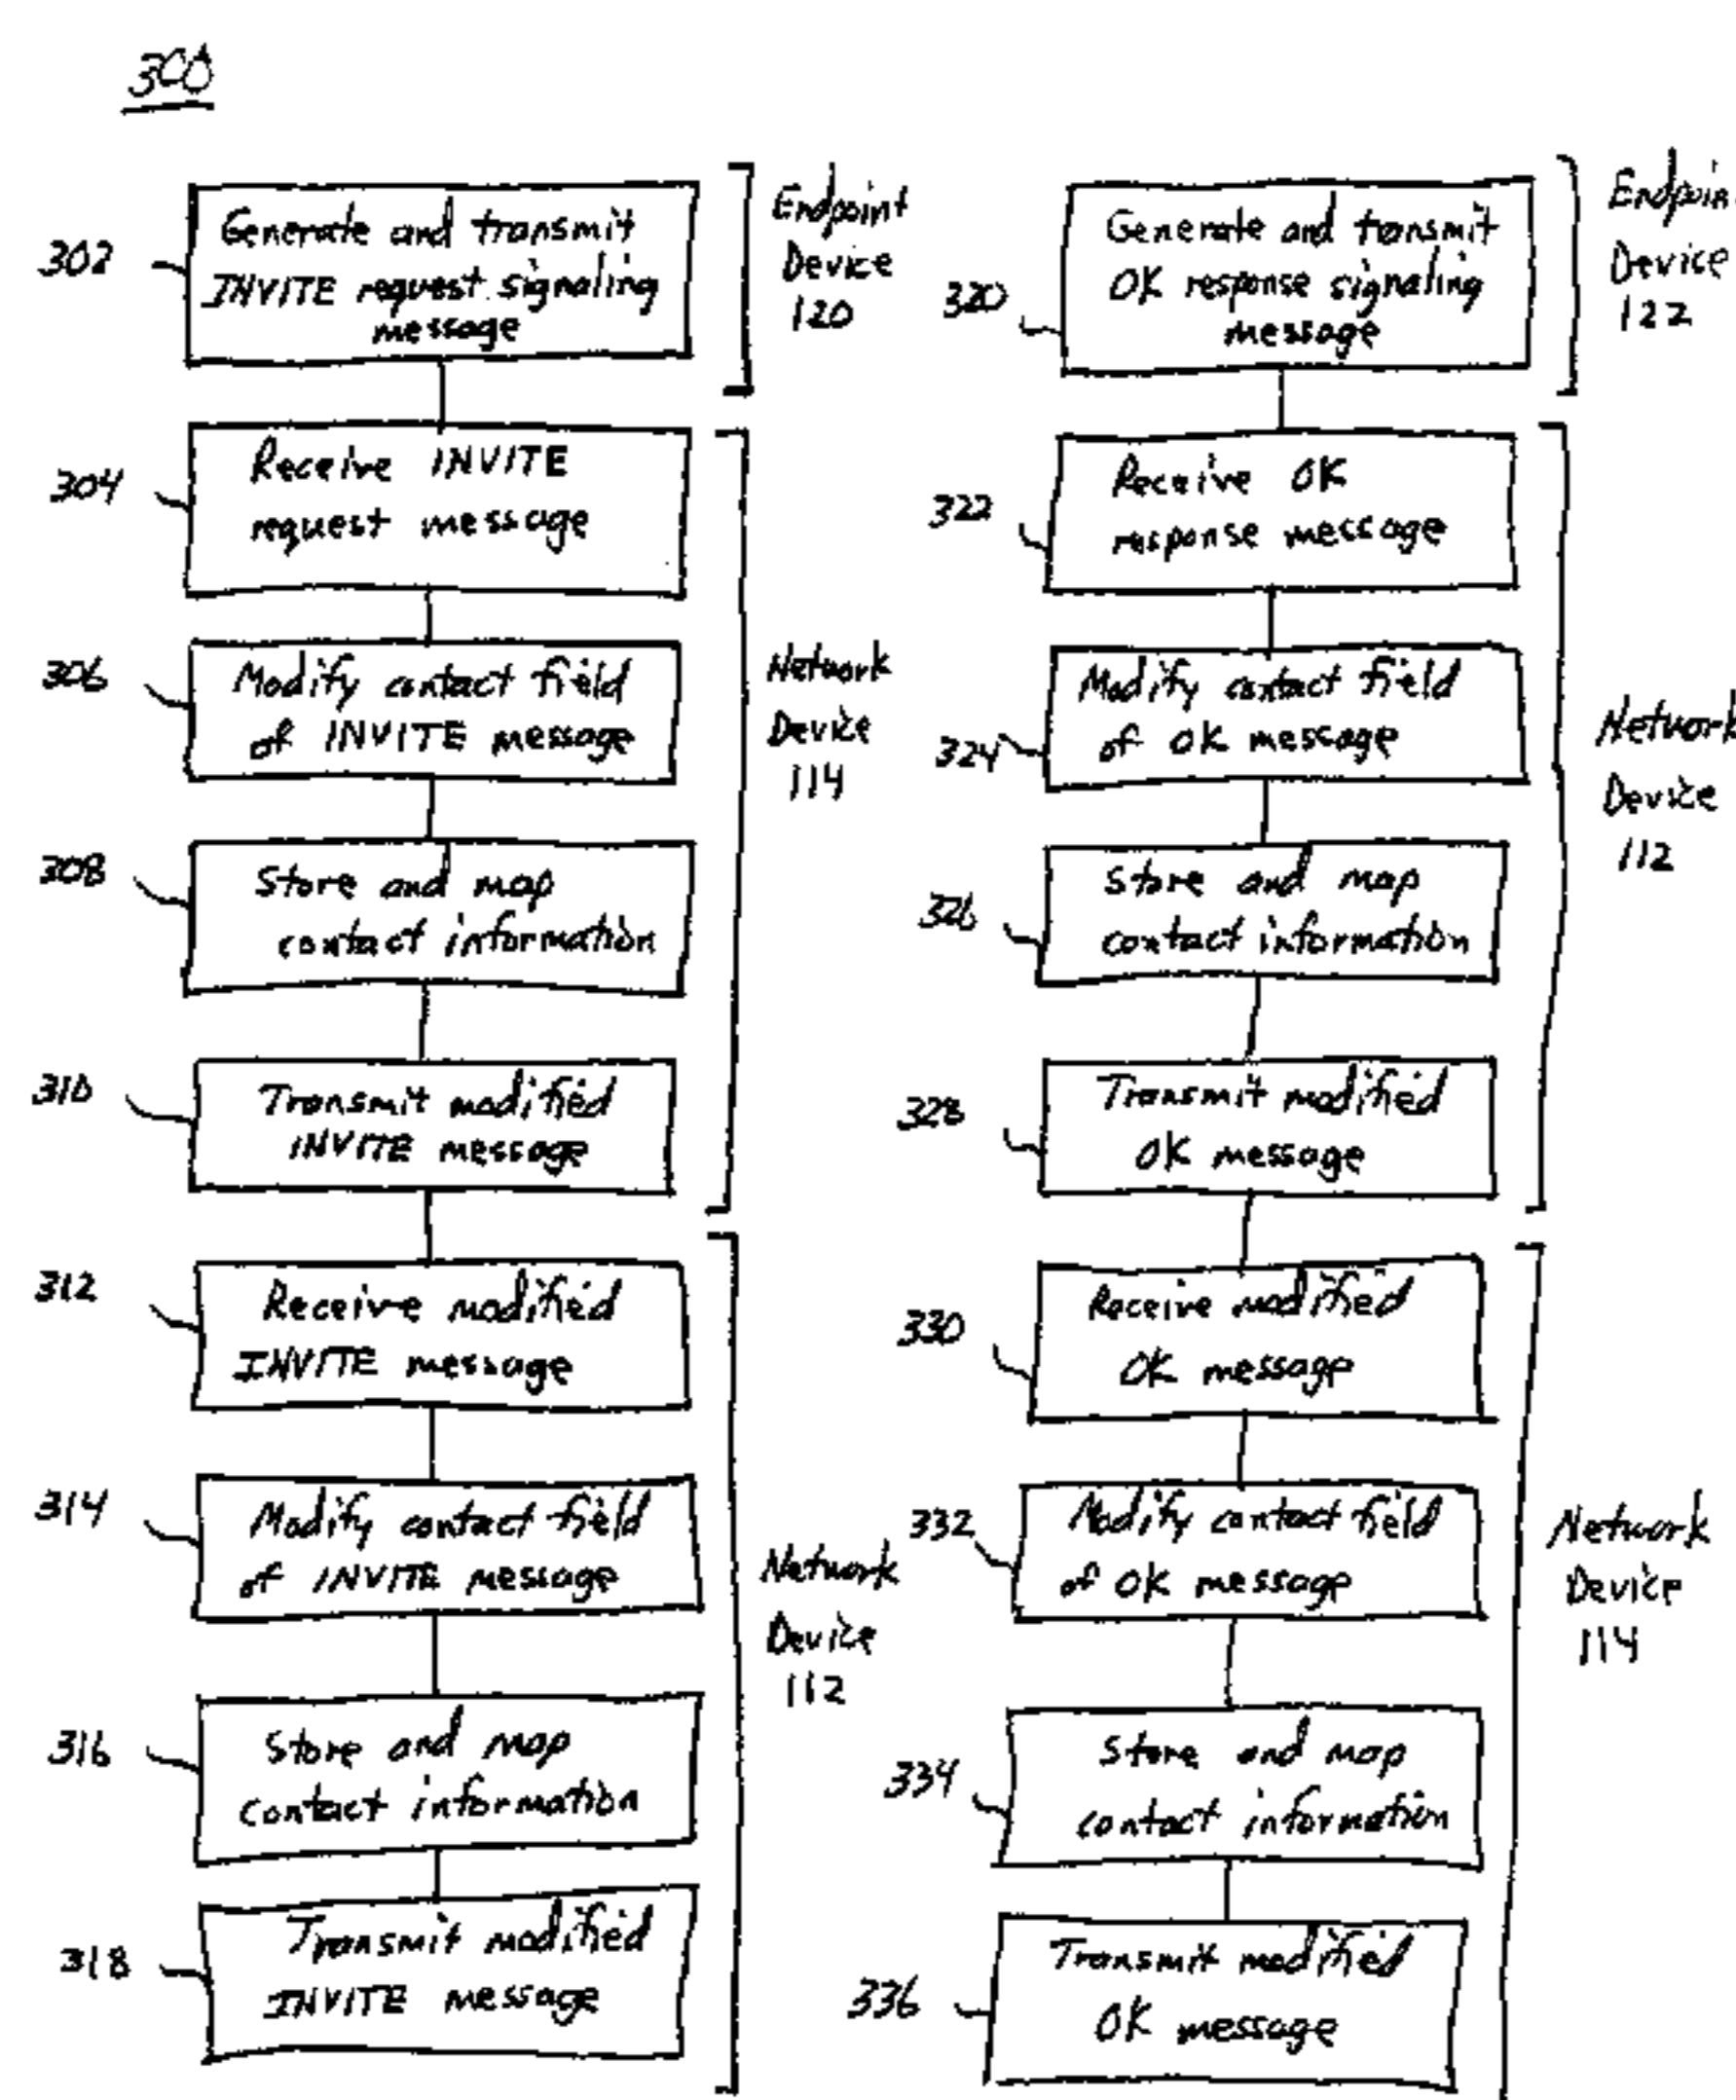 300
302
Generate and transmit
INVITE request signaling
message
Endpoint
Device
120
304
Receive INVITE
request message
306
Modify contact field
of INVITE message
308
Store and map
contact information
310
Transmit modified
INVITE message
Network
Device
114
312
Receive modified
INVITE message
314
Modify contact field
of INVITE message
316
Store and map
contact information
318
Transmit modified
INVITE message
Network
Device
112
320
Generate and transmit
OK response signaling
message
Endpoin
Device
122
322
Receive OK
response message
324
Modify contact field
of OK message
326
Store and map
contact information
328
Transmit modified
OK message
Network
Device
112
330
Receive modified
OK message
332
Modify contact field
of OK message
334
Store and map
contact information
336
Transmit modified
OK message
Network
Device
114